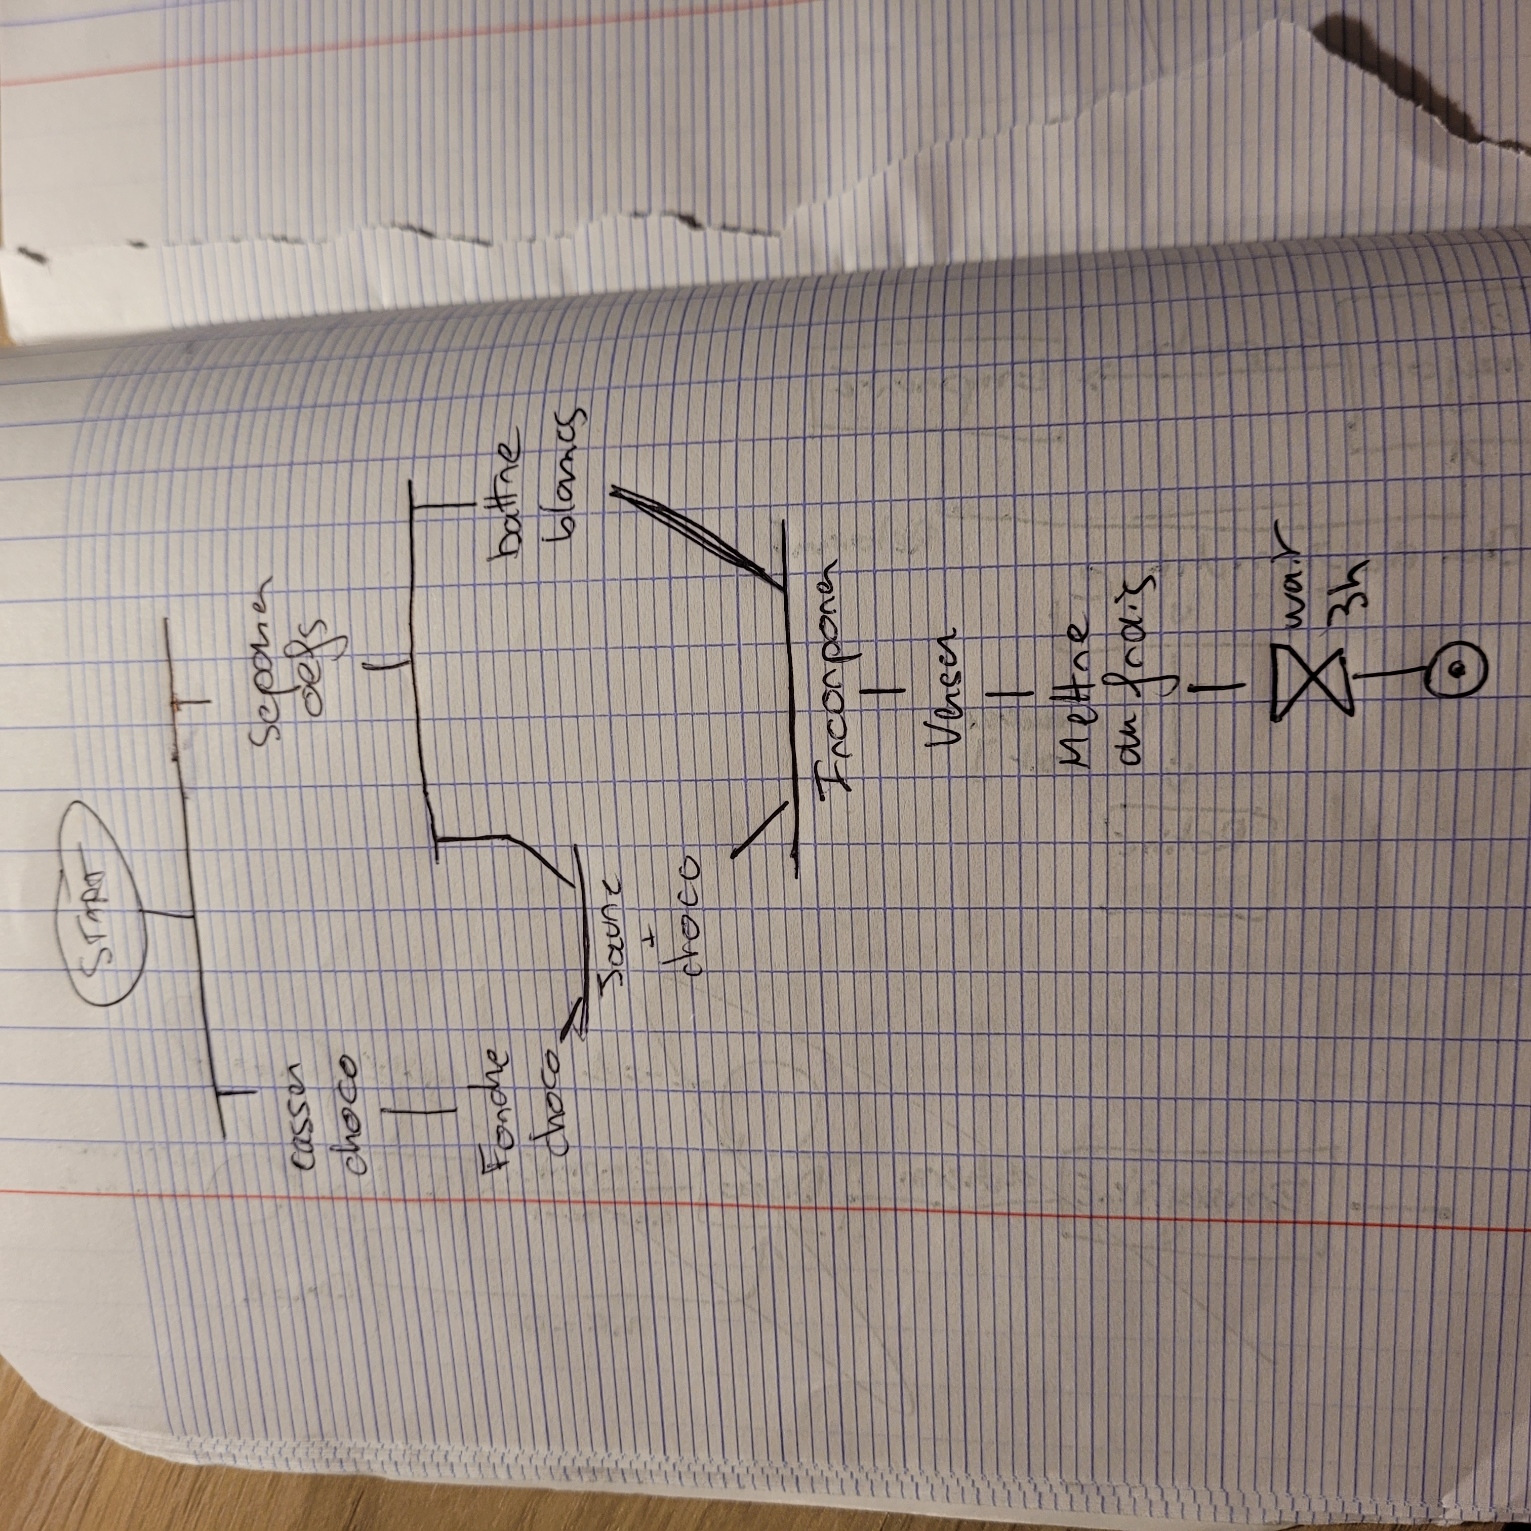 START
casser
choco
Séparer
oefs
Fondre
choco
battre
blancs
Jaune
+
choco
Incorporer
Verser
Mettre
au frais
wait
3h